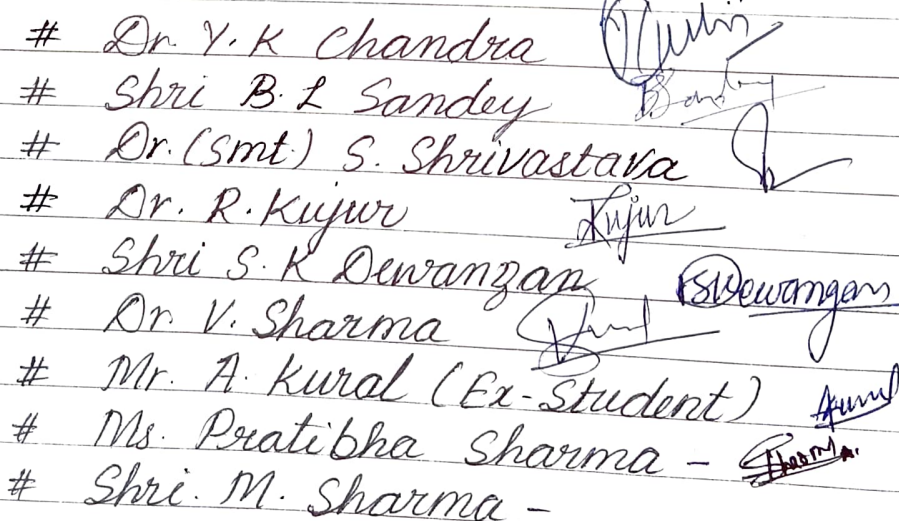 # Dr. Y. K Chandra
# Shri B. L Sandey
# Dr. (Smt.) S. Shrivastava
# Dr. R. Kujur Kujur
# Shri S. K Dewangan SDewangan
# Dr. V. Sharma
# Mr. A. Kural (Ex-Student)
# Ms. Pratibha Sharma - Sharma
# Shri. M. Sharma -